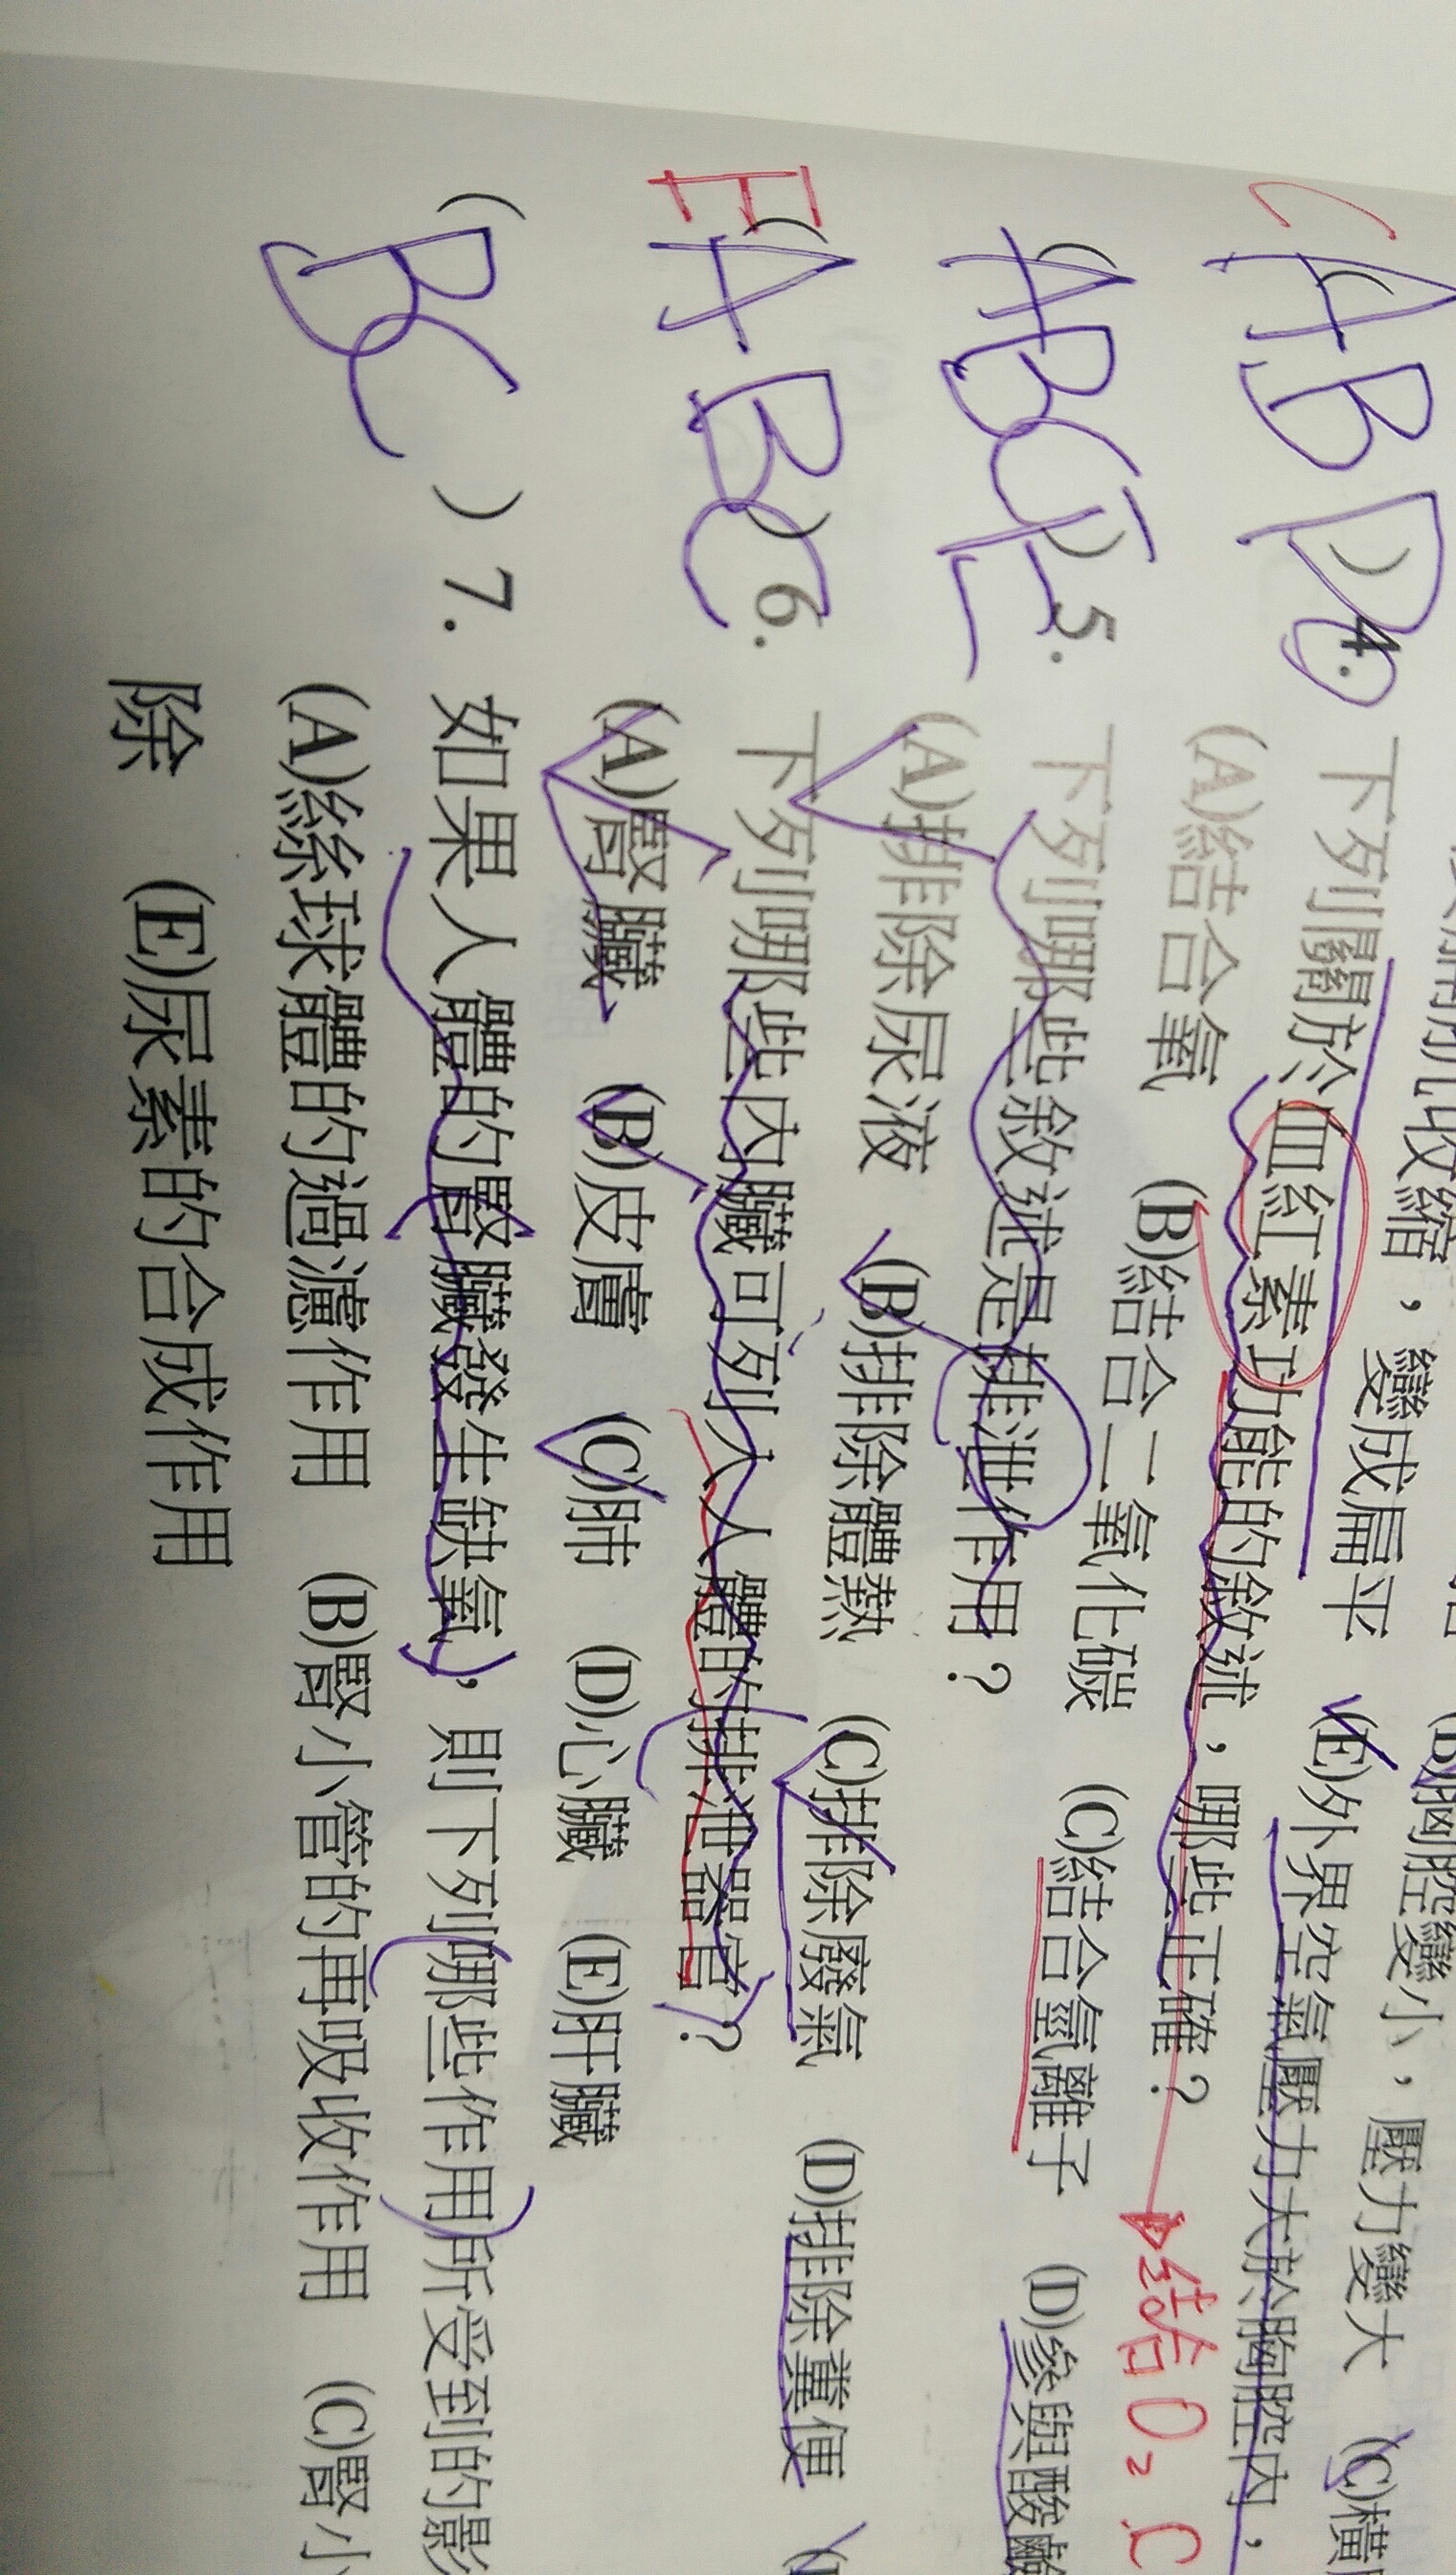 收縮，變成扁平 (B)胸腔變小，壓力變大 (C)橫
(E)外界空氣壓力大於胸腔內，
C ABD
4. 下列關於血紅素功能的敘述，哪些正確？ 結合 O₂ C
(A)結合氧 (B)結合二氧化碳 (C)結合氫離子 (D)參與酸鹼
ABCE
5. 下列哪些敘述是排泄作用？
(A)排除尿液 (B)排除體熱 (C)排除廢氣 (D)排除糞便
E ABC
( )6. 下列哪些內臟可列入人體的排泄器官？
(A)腎臟 (B)皮膚 (C)肺 (D)心臟 (E)肝臟
( BC )7. 如果人體的腎臟發生缺氧，則下列哪些作用所受到的影
(A)絲球體的過濾作用 (B)腎小管的再吸收作用 (C)腎小
除 (E)尿素的合成作用